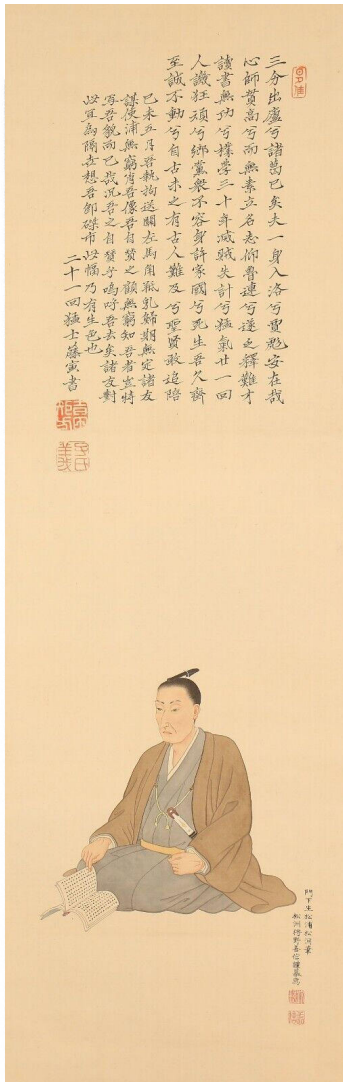 三分出廬兮諸葛已矣夫一身入洛兮賈彪安在哉
心師貫高兮而無素立名志仰魯連兮遂乏釋難才
讀書無功兮樸學三十年滅賊失計兮猛氣廿一回
人譏狂頑兮鄉黨衆不容身許家國兮死生吾久齊
至誠不動兮自古未之有古人難及兮聖賢敢追陪
己未五月吾執拘送關左馬角羝乳歸期無定諸友
謀使浦無窮肖吾像吾自賛之顧無窮知吾者豈特
写吾貌而已哉況吾之自賛乎嗚呼吾去矣諸友對
此宜為隔世想吾即磔市此幅乃有生色也
二十一回猛士藤寅書
門下生松浦松洞筆